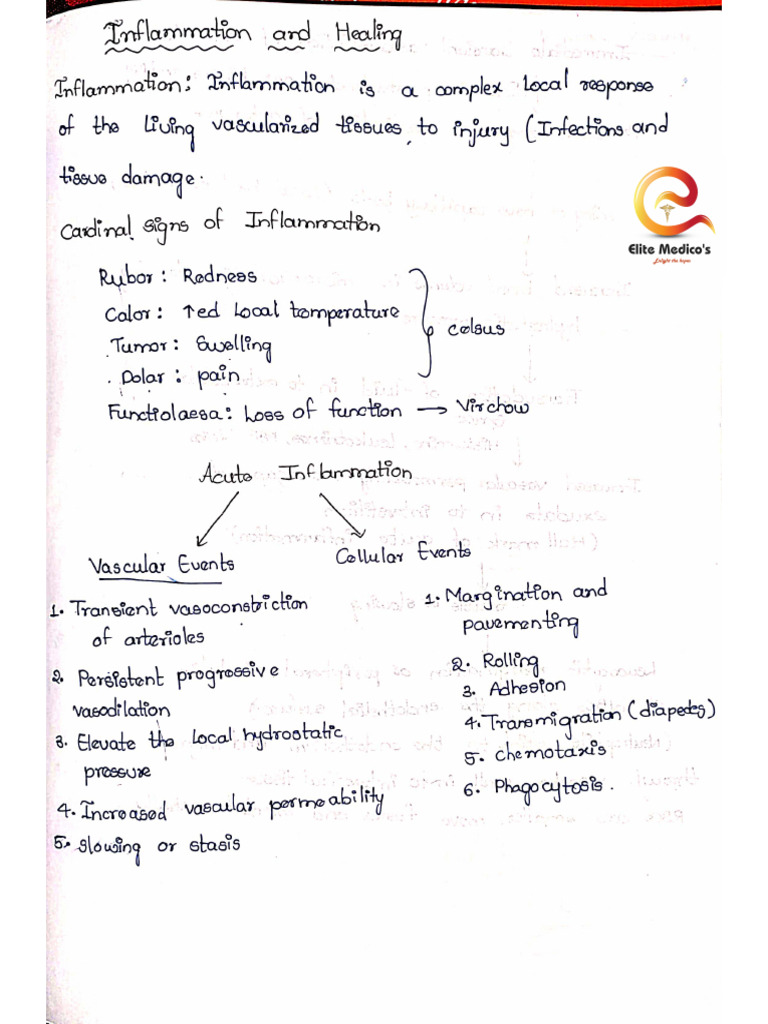 Inflammation and Healing
Inflammation: Inflammation is a complex Local response
of the Living vascularized tissues, to injury (Infections and
tissue damage.
Elite Medico's
Cardinal signs of Inflammation
Rubor: Redness
Calor: ↑ed Local temperature
Tumor: Swelling
Dolar: pain
Celsus
Functiolaesa: Loss of function → Virchow
Acute Inflammation
Vascular Events
1. Transient vasoconstriction
of arterioles
2. Persistent progressive
vasodilation
3. Elevate the Local hydrostatic
pressure
4. Increased vascular permeability
5. Slowing or stasis
Cellular Events
1. Margination and
pavementing
2. Rolling
3. Adhesion
4. Transmigration (diapedes)
5. Chemotaxis
6. Phagocytosis.